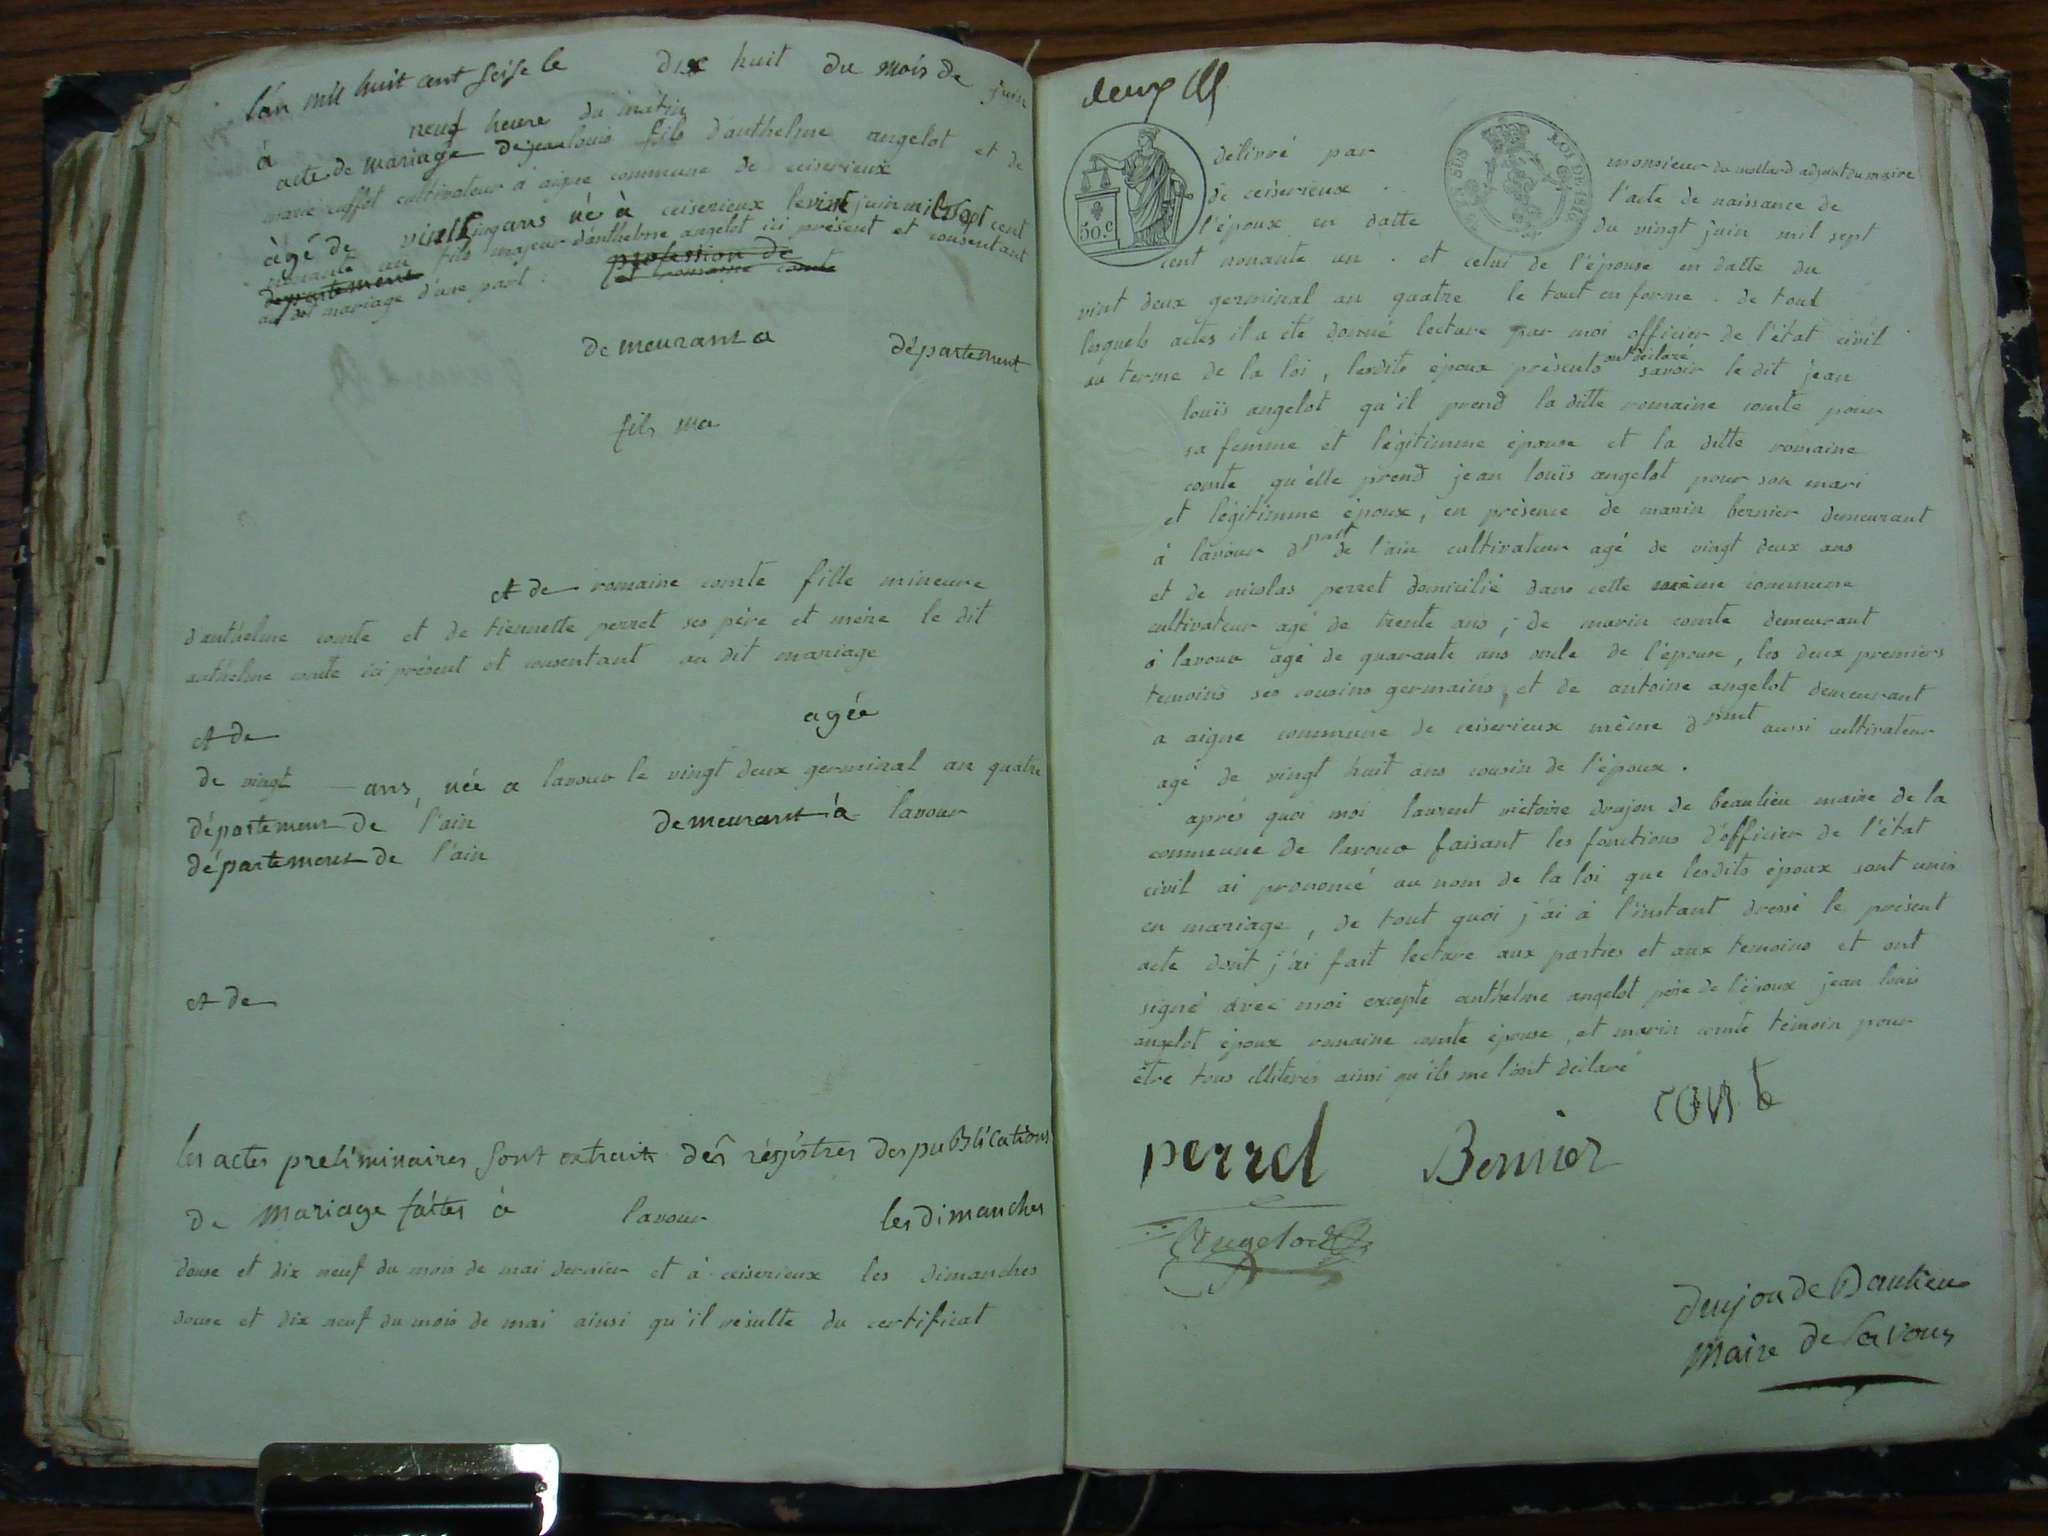 l'an mil huit cent seise le dix huit du mois de juin
à neuf heure du matin
acte de mariage de jean louis fils d'anthelme angelot et de
marie cultivateur à aigne commune de ceiserieux
àgé de vinit cinq ans né à ceiserieux le vint juin mil sept cent
nonante un fils majeur d'anthelme angelot ici présent et consentant
departement profession de
au dit mariage d'une part : et romaine comte
demeurant a département
fils ma
et de romaine comte fille mineure
d'anthelme comte et de tiennette perret ses père et mère le dit
anthelme comte ici présent et consentant au dit mariage
et de agée
de vingt ans, née a lavour le vingt deux germinal an quatre
département de l'ain demeurant à lavour
département de l'ain
et de
les actes preliminaires sont extraits des régistres des publications
de mariage faites à lavour les dimanches
douse et dix neuf du mois de mai dernier et à ceiserieux les dimanches
douse et dix neuf du mois de mai ainsi qu'il résulte du certificat
deux
50.C
ROI DE 1815
délivré par monsieur du mollard adjoint du maire
de ceiserieux . l'acte de naissance de
l'époux en datte du vingt juin mil sept
cent nonante un . et celui de l'épouse en datte du
vint deux germinal an quatre le tout en forme . de tout
lesquels actes il a été donné lecture par moi officier de l'état civil
au terme de la loi, lesdits époux présents ont déclaré savoir le dit jean
louïs angelot qu'il prend la ditte romaine comte pour
sa femme et légitimme épouse et la ditte romaine
comte qu'elle prend jean louïs angelot pour son mari
et légitimme époux, en présence de marin bernier demeurant
à lavour dpart de l'ain cultivateur agé de vingt deux ans
et de nicolas perret domicilié dans cette même commune
cultivateur agé de trente ans, de marin comte demeurant
à lavour agé de quarante ans oncle de l'épouse, les deux premiers
temoins ses cousins germains, et de antoine angelot demeurant
a aigne commune de ceiserieux même dpmt aussi cultivateur
agé de vingt huit ans cousin de l'époux.
après quoi moi laurent victoire dujou de beaulieu maire de la
commune de lavour faisant les fonctions d'officier de l'état
civil ai prononcé au nom de la loi que lesdits époux sont unis
en mariage, de tout quoi j'ai à l'instant dressé le présent
acte dont j'ai fait lecture aux parties et aux temoins et ont
signé avec moi excepté anthelme angelot père de l'époux jean louis
angelot époux romaine comte épouse, et marin comte témoin pour
être tous illiterés ainsi qu'ils me l'ont déclaré
perret Bernier conte
Angelot
Dujou de Baulieu
Maire de Lavour